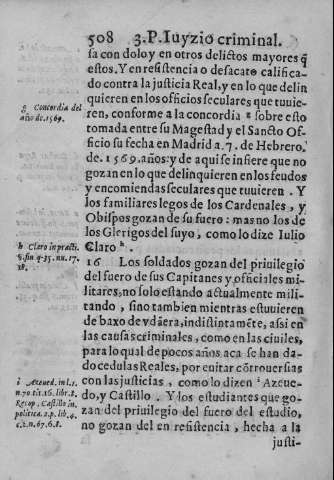 508 3. P. Iuyzio criminal.
sa con dolo y en otros delictos mayores q̃
estos. Y en resistencia o desacato califica-
do contra la justicia Real, y en lo que delin
quieren en los officios seculares que tuuie-
ren, conforme a la concordia g sobre esto
tomada entre su Magestad y el Sancto Of-
ficio su fecha en Madrid a. 7. de Hebrero,
de. 1569. años: y de aqui se infiere que no
gozan en lo que delinquieren en los feudos
y encomiendas seculares que tuuieren. Y
los familiares legos de los Cardenales, y
Obispos gozan de su fuero: mas no los de
los Clerigos del suyo, como lo dize Iulio
Claro h.
16 Los soldados gozan del priuilegio
del fuero de sus Capitanes y officiales mi-
litares, no solo estando actualmente mili-
tando, sino tambien mientras estuuieren
de baxo de vãdera, indistintamẽte, assi en
las causas criminales, como en las ciuiles,
para lo qual de pocos años aca se han da-
do cedulas Reales, por euitar cõtrouersias
con las justicias, como lo dizen i Azeue-
do, y Castillo. Y los estudiantes que go-
zan del priuilegio del fuero del estudio,
no gozan del en resistencia, hecha a la
justi-
g Concordia del
año de. 1569.
h Claro in practi.
§. fin q. 35. nu. 17.
18.
i Azeued. in l. 1.
n. 70. tit. 16. libr. 8.
Recop. Castillo in
politica. 2. p. lib. 4.
c. 2. n. 67. 68.